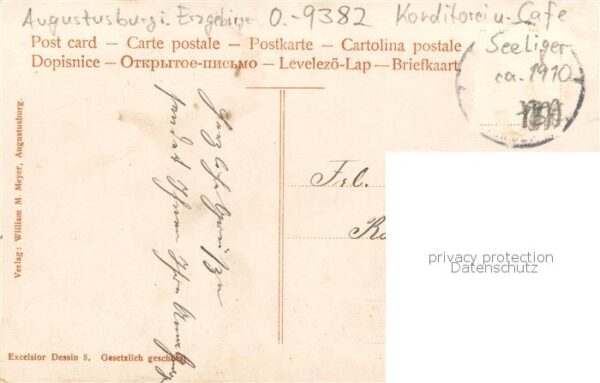 Augustusburg i. Erzgebirge O.-9382 Konditorei u. Cafe
Seeliger
ca. 1910
Post card – Carte postale – Postkarte – Cartolina postale
Dopisnice – Открытое-письмо – Levelező-Lap – Briefkaart
Herzliche Grüße
sendet Ihnen Ihre
Frl.
privacy protection
Datenschutz
Verlag: William M. Meyer, Augustusburg.
Excelsior Dessin 8. Gesetzlich gesch